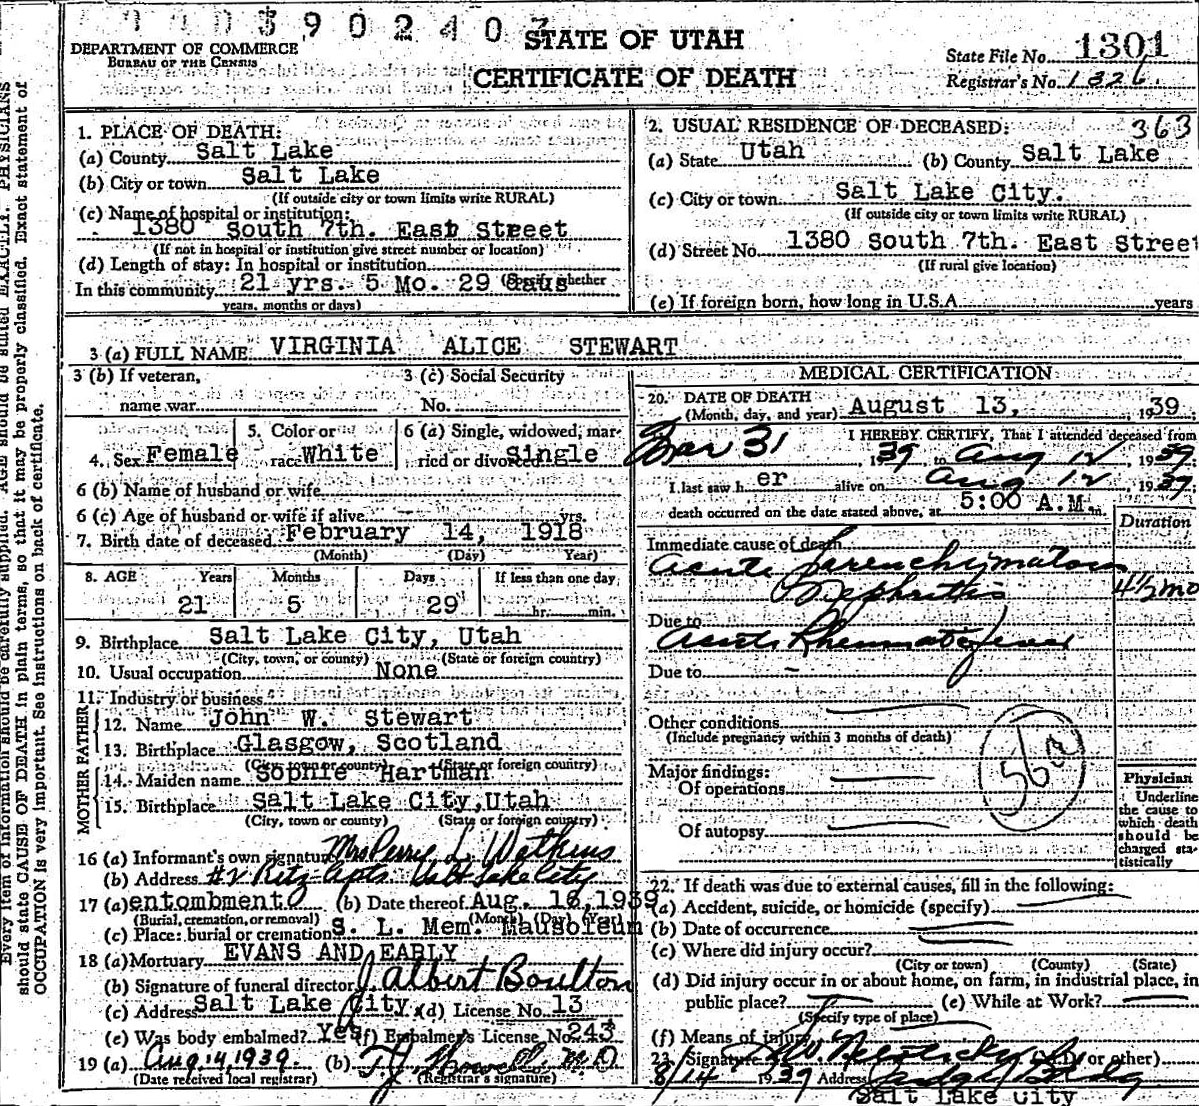 390240
DEPARTMENT OF COMMERCE
BUREAU OF THE CENSUS
STATE OF UTAH
CERTIFICATE OF DEATH
State File No. 1301
Registrar's No. 1326
1. PLACE OF DEATH:
(a) County Salt Lake
(b) City or town Salt Lake
(If outside city or town limits write RURAL)
(c) Name of hospital or institution:
1380 South 7th. East Street
(If not in hospital or institution give street number or location)
(d) Length of stay: In hospital or institution
(Specify whether
In this community 21 yrs. 5 Mo. 29 Days
years, months or days)
2. USUAL RESIDENCE OF DECEASED: 363
(a) State Utah (b) County Salt Lake
(c) City or town Salt Lake City.
(If outside city or town limits write RURAL)
(d) Street No. 1380 South 7th. East Street
(If rural give location)
(e) If foreign born, how long in U.S.A. years
3 (a) FULL NAME VIRGINIA ALICE STEWART
3 (b) If veteran,
name war
3 (c) Social Security
No.
4. Sex Female
5. Color or
race White
6 (a) Single, widowed, mar-
ried or divorced Single
6 (b) Name of husband or wife
6 (c) Age of husband or wife if alive yrs.
7. Birth date of deceased February 14, 1918
(Month) (Day) Year)
8. AGE Years Months Days If less than one day
21 5 29 hr. min.
9. Birthplace Salt Lake City, Utah
(City, town, or county) (State or foreign country)
10. Usual occupation None
11. Industry or business
FATHER
12. Name John W. Stewart
13. Birthplace Glasgow, Scotland
(City, town or county) (State or foreign country)
MOTHER
14. Maiden name Sophie Hartman
15. Birthplace Salt Lake City, Utah
(City, town or county) (State or foreign country)
16 (a) Informant's own signature Mrs Perrie L. Watkins
(b) Address #2 Ritz Apts Salt Lake City
17 (a) entombment (b) Date thereof Aug. 16, 1939
(Burial, cremation, or removal) (Month) (Day) (Year)
(c) Place: burial or cremation S. L. Mem. Mausoleum
18 (a) Mortuary EVANS AND EARLY
(b) Signature of funeral director J Albert Boulton
(c) Address Salt Lake City. (d) License No. 13
(e) Was body embalmed? Yes (f) Embalmer's License No. 243
19 (a) Aug. 14, 1939. (b) T. J. Howells M.D
(Date received local registrar) (Registrar's signature)
MEDICAL CERTIFICATION
20. DATE OF DEATH
(Month, day, and year) August 13, 1939.
I HEREBY CERTIFY, That I attended deceased from
Mar 31, 1939 to Aug 12, 1939.
I last saw her alive on Aug 12, 1939
death occurred on the date stated above, at 5:00 A.M. m.
Duration
Immediate cause of death
Acute Parenchymatous
Nephritis 4½ mo
Due to
Acute Rheumatic fever
Due to
Other conditions
(Include pregnancy within 3 months of death)
Major findings:
Of operations
Of autopsy
Physician
Underline
the cause to
which death
should be
charged sta-
tistically
22. If death was due to external causes, fill in the following:
(a) Accident, suicide, or homicide (specify)
(b) Date of occurrence
(c) Where did injury occur?
(City or town) (County) (State)
(d) Did injury occur in or about home, on farm, in industrial place, in
public place? (e) While at Work?
(Specify type of place)
(f) Means of injury
23. Signature (M.D. or other)
8/14 1939 Address Judge Bldg
Salt Lake City
Every item of information should be carefully supplied. AGE should be stated EXACTLY. PHYSICIANS
should state CAUSE OF DEATH in plain terms, so that it may be properly classified. Exact statement of
OCCUPATION is very important. See instructions on back of certificate.